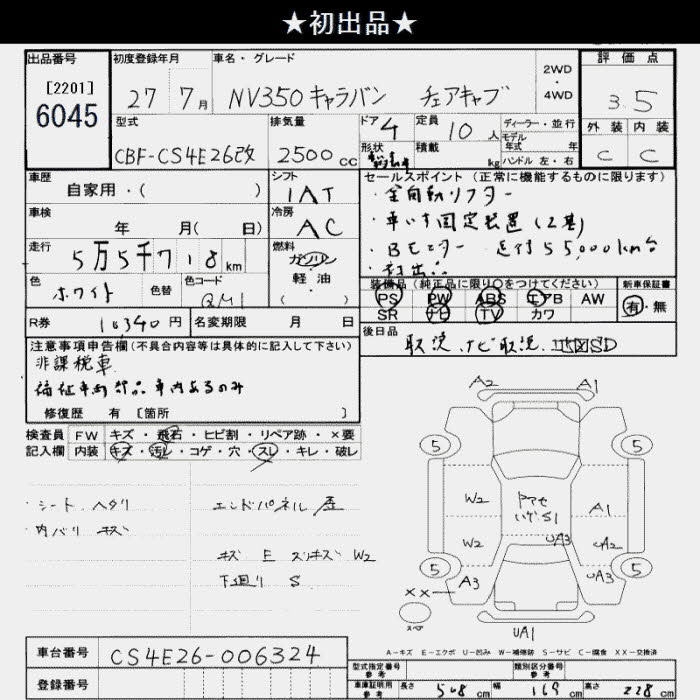 ★初出品★
出品番号
[2201]
6045
初度登録年月
27 7月
車名・グレード
NV350キャラバン チェアキャブ
2WD
・
4WD
評価点
3.5
外装 内装
C C
型式
CBF-CS4E26改
排気量
2500cc
ドア
4
形状
定員
10人
積載
kg
ディーラー・並行
モデル
年式 年
ハンドル 左・右
車歴
自家用・( )
シフト
IAT
車検
年 月( 日)
冷房
AC
走行
5万5千718km
燃料
ガソリン
・
軽油
( )
色
ホワイト
色替
色コード
QM1
R券
10,340円
名変期限 月 日
セールスポイント(正常に機能するものに限ります)
・全自動リフター
・車いす固定装置(2基)
・Bモニター 走行55,000km台
・初出品
装備品(純正品に限り○をつけてください)
PS PW ABS エアB AW
SR ナビ TV カワ
新車保証書
有・無
後日品
取説、ナビ取説、地図SD
注意事項申告欄(不具合内容等は具体的に記入して下さい)
非課税車
福祉車両部品車内あるのみ
修復歴 有 [箇所 ]
検査員
記入欄
FW キズ・飛石・ヒビ割・リペア跡・×要
内装 キズ・汚レ・コゲ・穴・スレ・キレ・破レ
シート ヘタリ
内バリ キズ
エンドパネル 歪
キズ E スリキズ W2
下廻り S
A2 A1
5 5
W2 A1
W2 UA3 UA2
5 5
A3 UA3
XX
スペア
UA1
A-キズ E-エクボ U-凹み W-補修跡 S-サビ C-腐食 XX-交換済
車台番号
CS4E26-006324
登録番号
型式指定番号
参考
類別区分番号
参考
車庫証明用
参考
長さ 508cm 幅 169cm 高さ 228cm